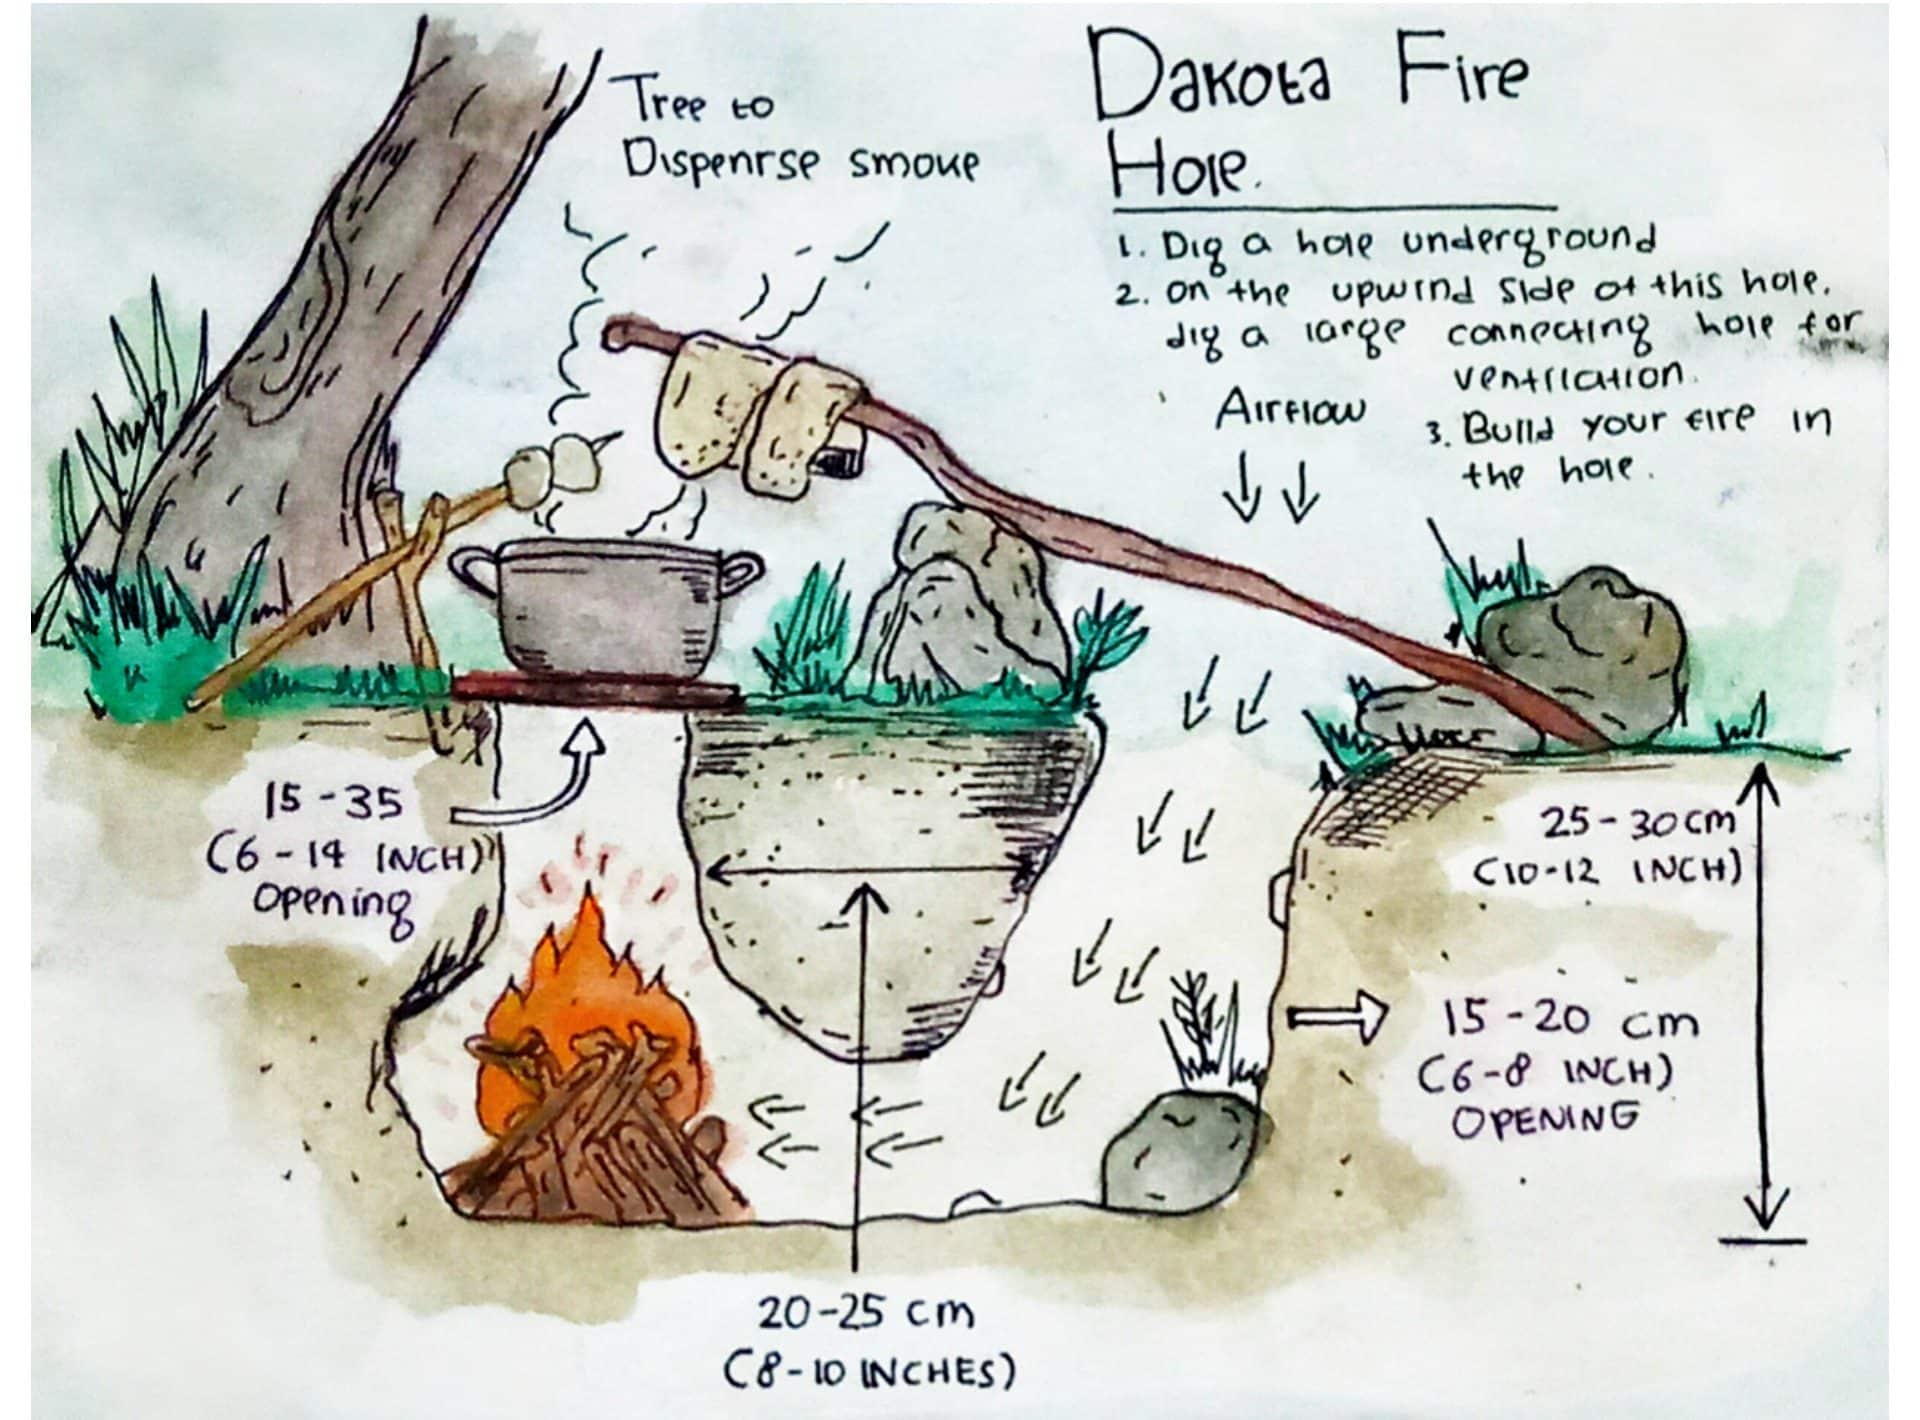 Tree to
Dispenrse smoke
Dakota Fire
Hole.
1. Dig a hole underground
2. on the upwind side of this hole.
dig a large connecting hole for
ventilation.
Airflow
3. Build your fire in
the hole.
15-35
(6-14 INCH)
opening
25-30cm
(10-12 INCH)
15-20 cm
(6-8 INCH)
OPENING
20-25 cm
(8-10 INCHES)